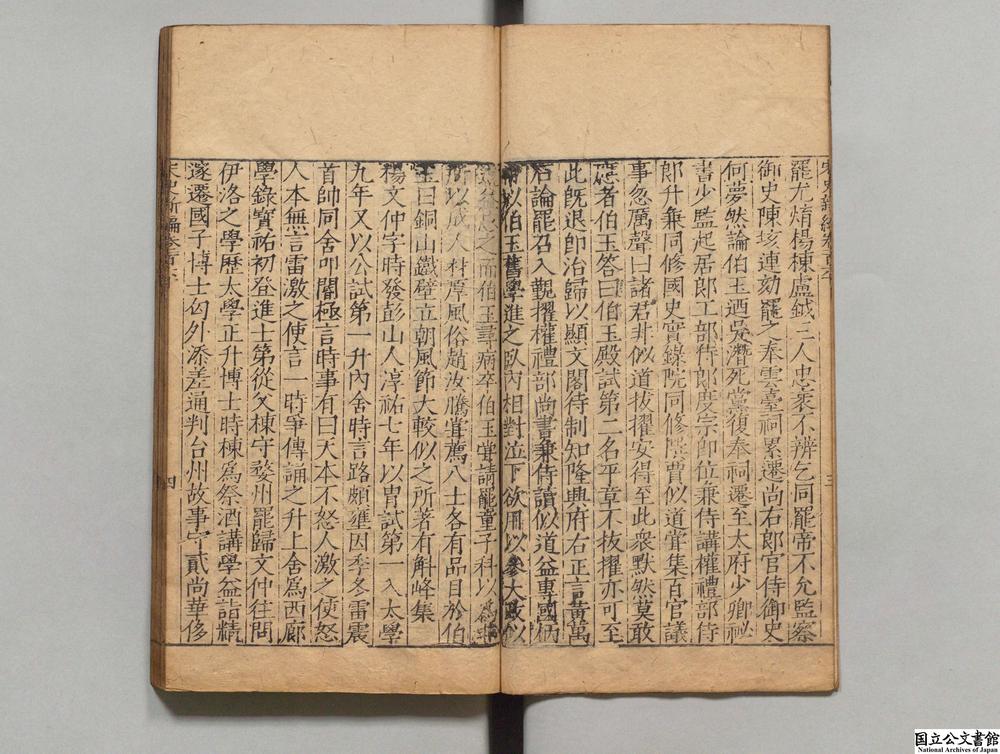 罷尤焴楊棟盧鉞三人忠衺不辨乞同罷帝不允監察
御史陳垓連劾罷之奉雲臺祠累遷尚右郎官侍御史
何夢然論伯玉迺吳濳死黨復奉祠遷至太府少卿祕
書少監起居郎工部侍郎度宗卽位兼侍講權禮部侍
郎升兼同修國史實錄院同修撰賈似道嘗集百官議
事忽厲聲曰諸君非似道拔擢安得至此衆默然莫敢
應者伯玉答曰伯玉殿試第二名平章不拔擢亦可至
此旣退卽治歸以顯文閣待制知隆興府右正言黃萬
石論罷召入覲擢權禮部尚書兼侍讀似道益專國柄
帝以伯玉舊學進之臥內相對泣下欲用以參大政似
道益忌之而伯玉尋病卒伯玉嘗請罷童子科以爲非
所以成人材厚風俗趙汝騰嘗薦八士各有品目於伯
玉曰銅山鐵壁立朝風節大較似之所著有斛峰集
楊文仲字時發彭山人淳祐七年以胄試第一入太學
九年又以公試第一升內舍時言路頗壅因季冬雷震
首帥同舍叩閽極言時事有曰天本不怒人激之使怒
人本無言雷激之使言一時爭傳誦之升上舍爲西廊
學錄寶祐初登進士第從父棟守婺州罷歸文仲往問
伊洛之學歷太學正升博士時棟爲祭酒講學益詣精
邃遷國子博士匄外添差通判台州故事守貳尚華侈
宋史新編卷
三
四
国立公文書館
National Archives of Japan